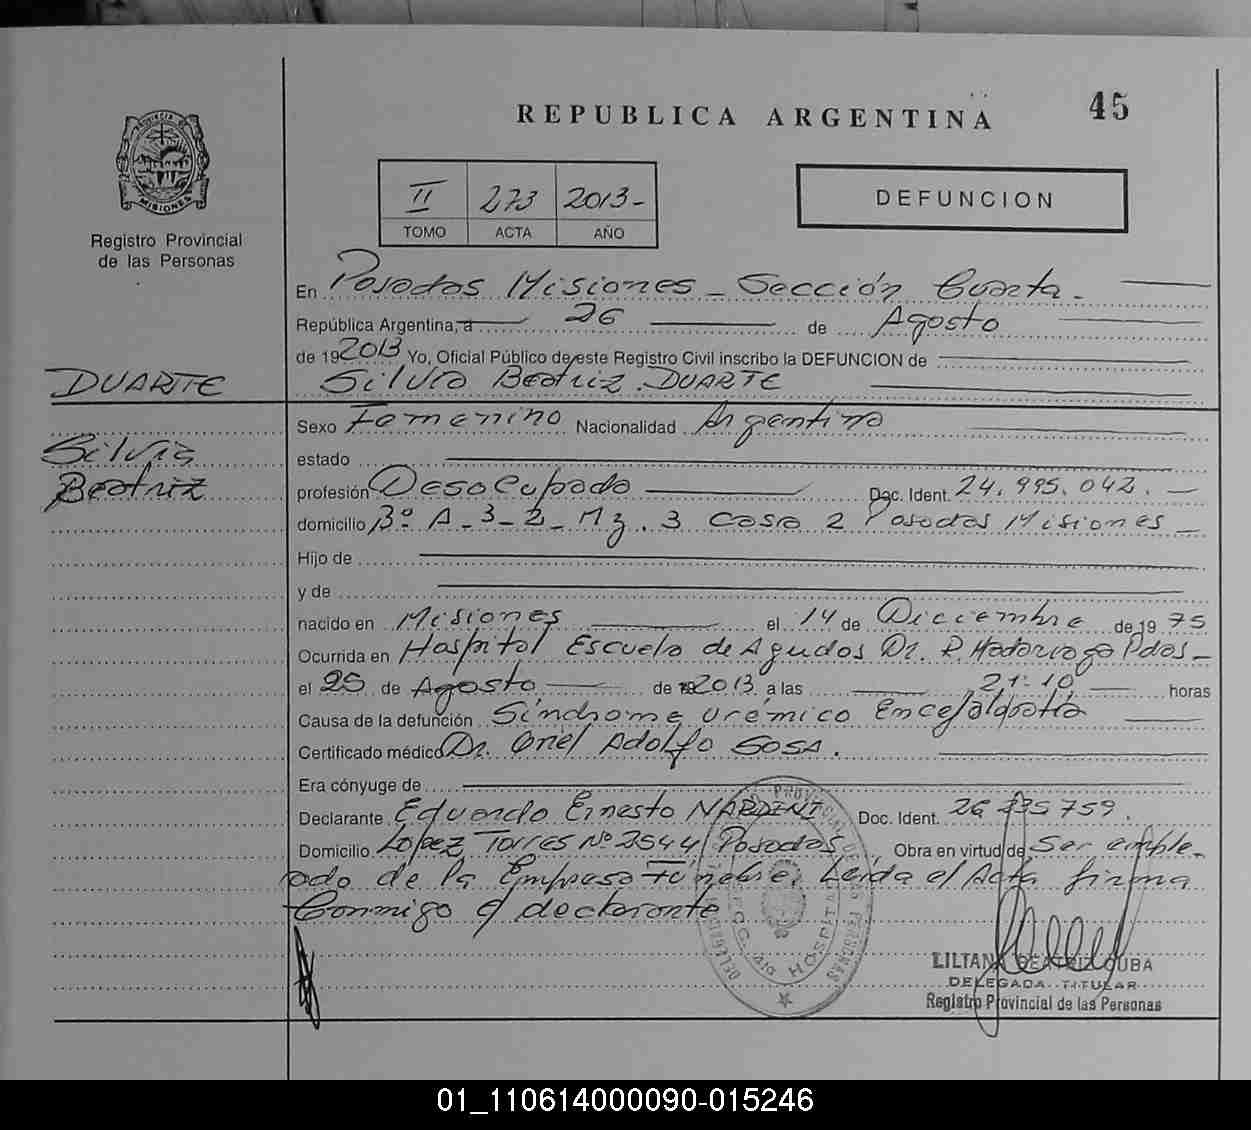 REPUBLICA ARGENTINA
45
PROVINCIA DE
MISIONES
Registro Provincial
de las Personas
II 273 2013-
TOMO ACTA AÑO
DEFUNCION
En Posadas Misiones - Sección Cuarta.
República Argentina, a 26 de Agosto
de 19 2013 Yo, Oficial Público de este Registro Civil inscribo la DEFUNCION de
DUARTE
Silvia Beatriz DUARTE
Silvia
Beatriz
Sexo Femenino Nacionalidad Argentina
estado
profesión Desocupada Doc. Ident. 24.995.042.
domicilio Bº A-3-2- Mz. 3 Casa 2 Posadas Misiones
Hijo de
y de
nacido en Misiones el 14 de Diciembre de 19 75
Ocurrida en Hospital Escuela de Agudos Dr. R. Madariaga Pdas-
el 25 de Agosto de 2013 a las 21:10 horas
Causa de la defunción Síndrome urémico Encefalopatía
Certificado médico Dr. Oriel Adolfo SOSA.
Era cónyuge de
Declarante Eduardo Ernesto NARDINI Doc. Ident. 26 335 759.
Domicilio López Torres Nº 2544 Posadas, Obra en virtud de Ser emple-
ado de la Empresa Fúnebre. Leída el Acta firma
Conmigo el declarante
HOSPITAL
LILIANA BEATRIZ CUBA
DELEGADA TITULAR
Registro Provincial de las Personas
01_110614000090-015246